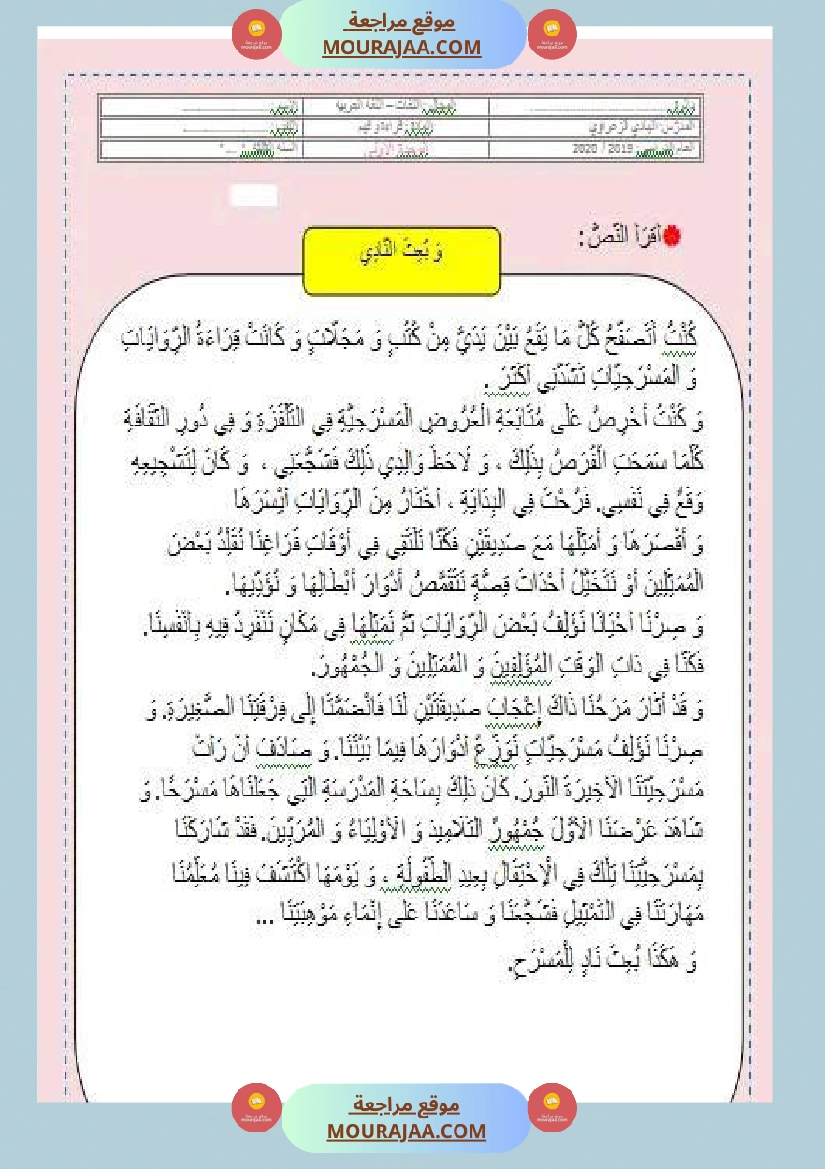 موقع مراجعة
MOURAJAA.COM
المجال: اللغات – اللغة العربية
المدرّس: الهادي الزهراوي
العام الدراسي: 2019 / 2020
أَقْرَأُ النَّصَّ:
وَ بُعِثَ النَّادِي
كُنْتُ أَتَصَفَّحُ كُلَّ مَا يَقَعُ بَيْنَ يَدَيَّ مِنْ كُتُبٍ وَ مَجَلَّاتٍ وَ كَانَتْ قِرَاءَةُ الرِّوَايَاتِ
وَ المَسْرَحِيَّاتِ تَشُدُّنِي أَكْثَرَ .
وَ كُنْتُ أَحْرِصُ عَلَى مُتَابَعَةِ الْعُرُوضِ الْمَسْرَحِيَّةِ فِي التَّلْفَزَةِ وَ فِي دُورِ الثَّقَافَةِ
كُلَّمَا سَمَحَتِ الْفُرَصُ بِذَلِكَ ، وَ لَاحَظَ وَالِدِي ذَلِكَ فَشَجَّعَنِي ، وَ كَانَ لِتَشْجِيعِهِ
وَقْعٌ فِي نَفْسِي. فَرُحْتُ فِي البِدَايَةِ ، أَخْتَارُ مِنَ الرِّوَايَاتِ أَيْسَرَهَا
وَ أَقْصَرَهَا وَ أُمَثِّلُهَا مَعَ صَدِيقَيْنِ فَكُنَّا نَلْتَقِي فِي أَوْقَاتِ فَرَاغِنَا نُقَلِّدُ بَعْضَ
الْمُمَثِّلِينَ أَوْ نَتَخَيَّلُ أَحْدَاثَ قِصَّةٍ نَتَقَمَّصُ أَدْوَارَ أَبْطَالِهَا وَ نُؤَدِّيهَا.
وَ صِرْنَا أَحْيَانًا نُؤَلِّفُ بَعْضَ الرِّوَايَاتِ ثُمَّ نُمَثِّلُهَا فِي مَكَانٍ نَنْفَرِدُ فِيهِ بِأَنْفُسِنَا.
فَكُنَّا فِي ذَاتِ الْوَقْتِ الْمُؤَلِّفِينَ وَ الْمُمَثِّلِينَ وَ الْجُمْهُورَ.
وَ قَدْ أَثَارَ مَرَحُنَا ذَاكَ إِعْجَابَ صَدِيقَتَيْنِ لَنَا فَانْضَمَّتَا إِلَى فِرْقَتِنَا الصَّغِيرَةِ. وَ
صِرْنَا نُؤَلِّفُ مَسْرَحِيَّاتٍ نُوَزِّعُ أَدْوَارَهَا فِيمَا بَيْنَنَا. وَ صَادَفَ أَنْ رَأَتْ
مَسْرَحِيَّتُنَا الْأَخِيرَةُ النُّورَ. كَانَ ذَلِكَ بِسَاحَةِ الْمَدْرَسَةِ الَّتِي جَعَلْنَاهَا مَسْرَحًا. وَ
شَاهَدَ عَرْضَنَا الْأَوَّلَ جُمْهُورُ التَّلَامِيذِ وَ الْأَوْلِيَاءُ وَ الْمُرَبِّينَ. فَقَدْ شَارَكْنَا
بِمَسْرَحِيَّتِنَا تِلْكَ فِي الْاِحْتِفَالِ بِعِيدِ الطُّفُولَةِ ، وَ يَوْمَهَا اكْتَشَفَ فِينَا مُعَلِّمُنَا
مَهَارَتَنَا فِي التَّمْثِيلِ فَشَجَّعَنَا وَ سَاعَدَنَا عَلَى إِنْمَاءِ مَوْهِبَتِنَا ...
وَ هَكَذَا بُعِثَ نَادٍ لِلْمَسْرَحِ.
موقع مراجعة
MOURAJAA.COM